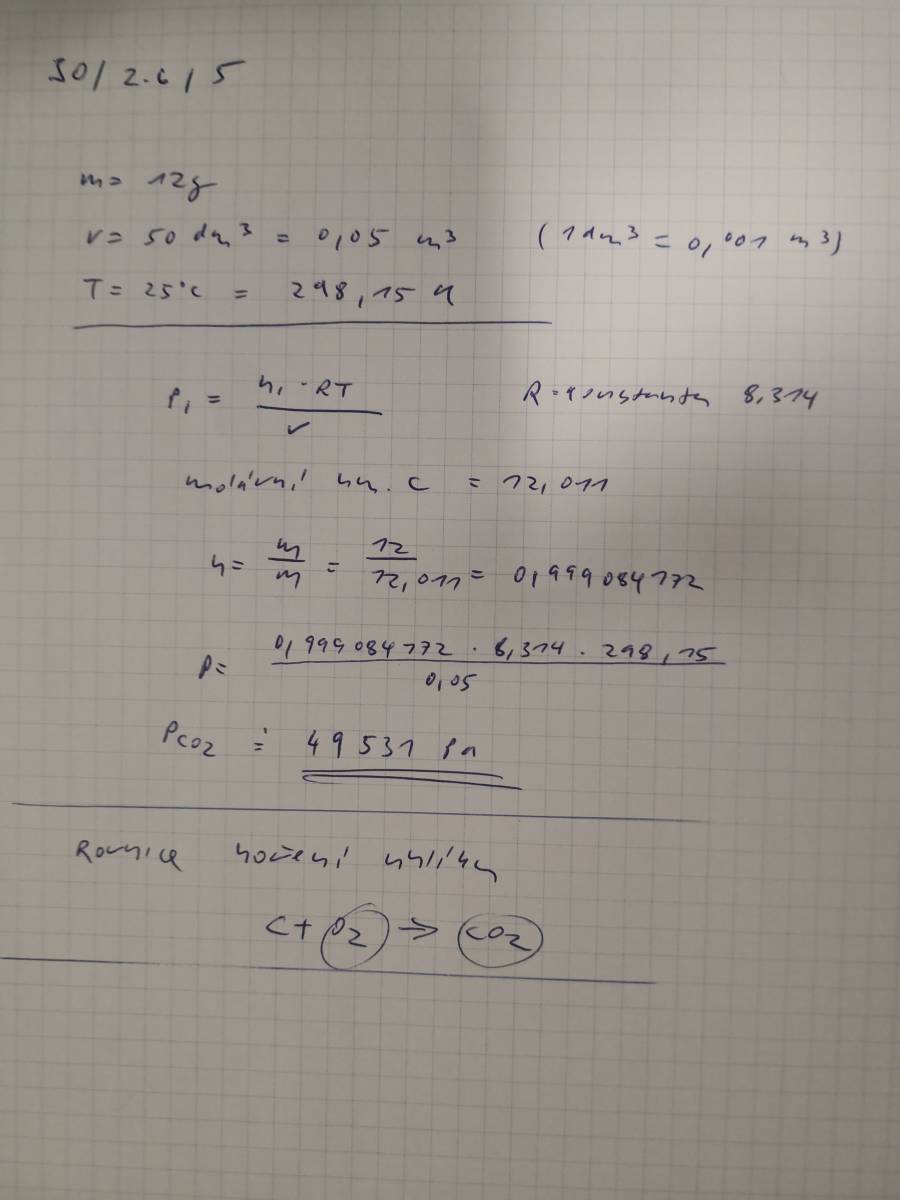 30/2.6/5
m= 12g
V= 50 dm³ = 0,05 m³ (1dm³ = 0,001 m³)
T= 25°C = 298,15 K
P₁ = n₁ · RT / V R=konstanta 8,314
molární hm. C = 12,011
n= m/m = 12/12,011 = 0,999084172
P= 0,999084172 · 8,314 · 298,15 / 0,05
PCO₂ ≐ 49531 Pa
Rovnice hoření uhlíku
C+O₂ → CO₂